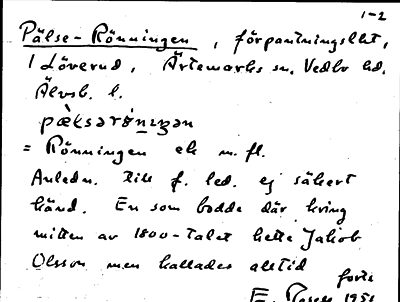 1-2
Pälse-Rönningen, förpantningslht,
i Löverud, Ärtemarks sn, Vedbo hd,
Älvsb. l.
= Rönningen ek m. fl.
Anledn. till f. led. ej säkert
känd. En som bodde där kring
mitten av 1800-talet hette Jakob
Olsson men kallades alltid
forts
E.